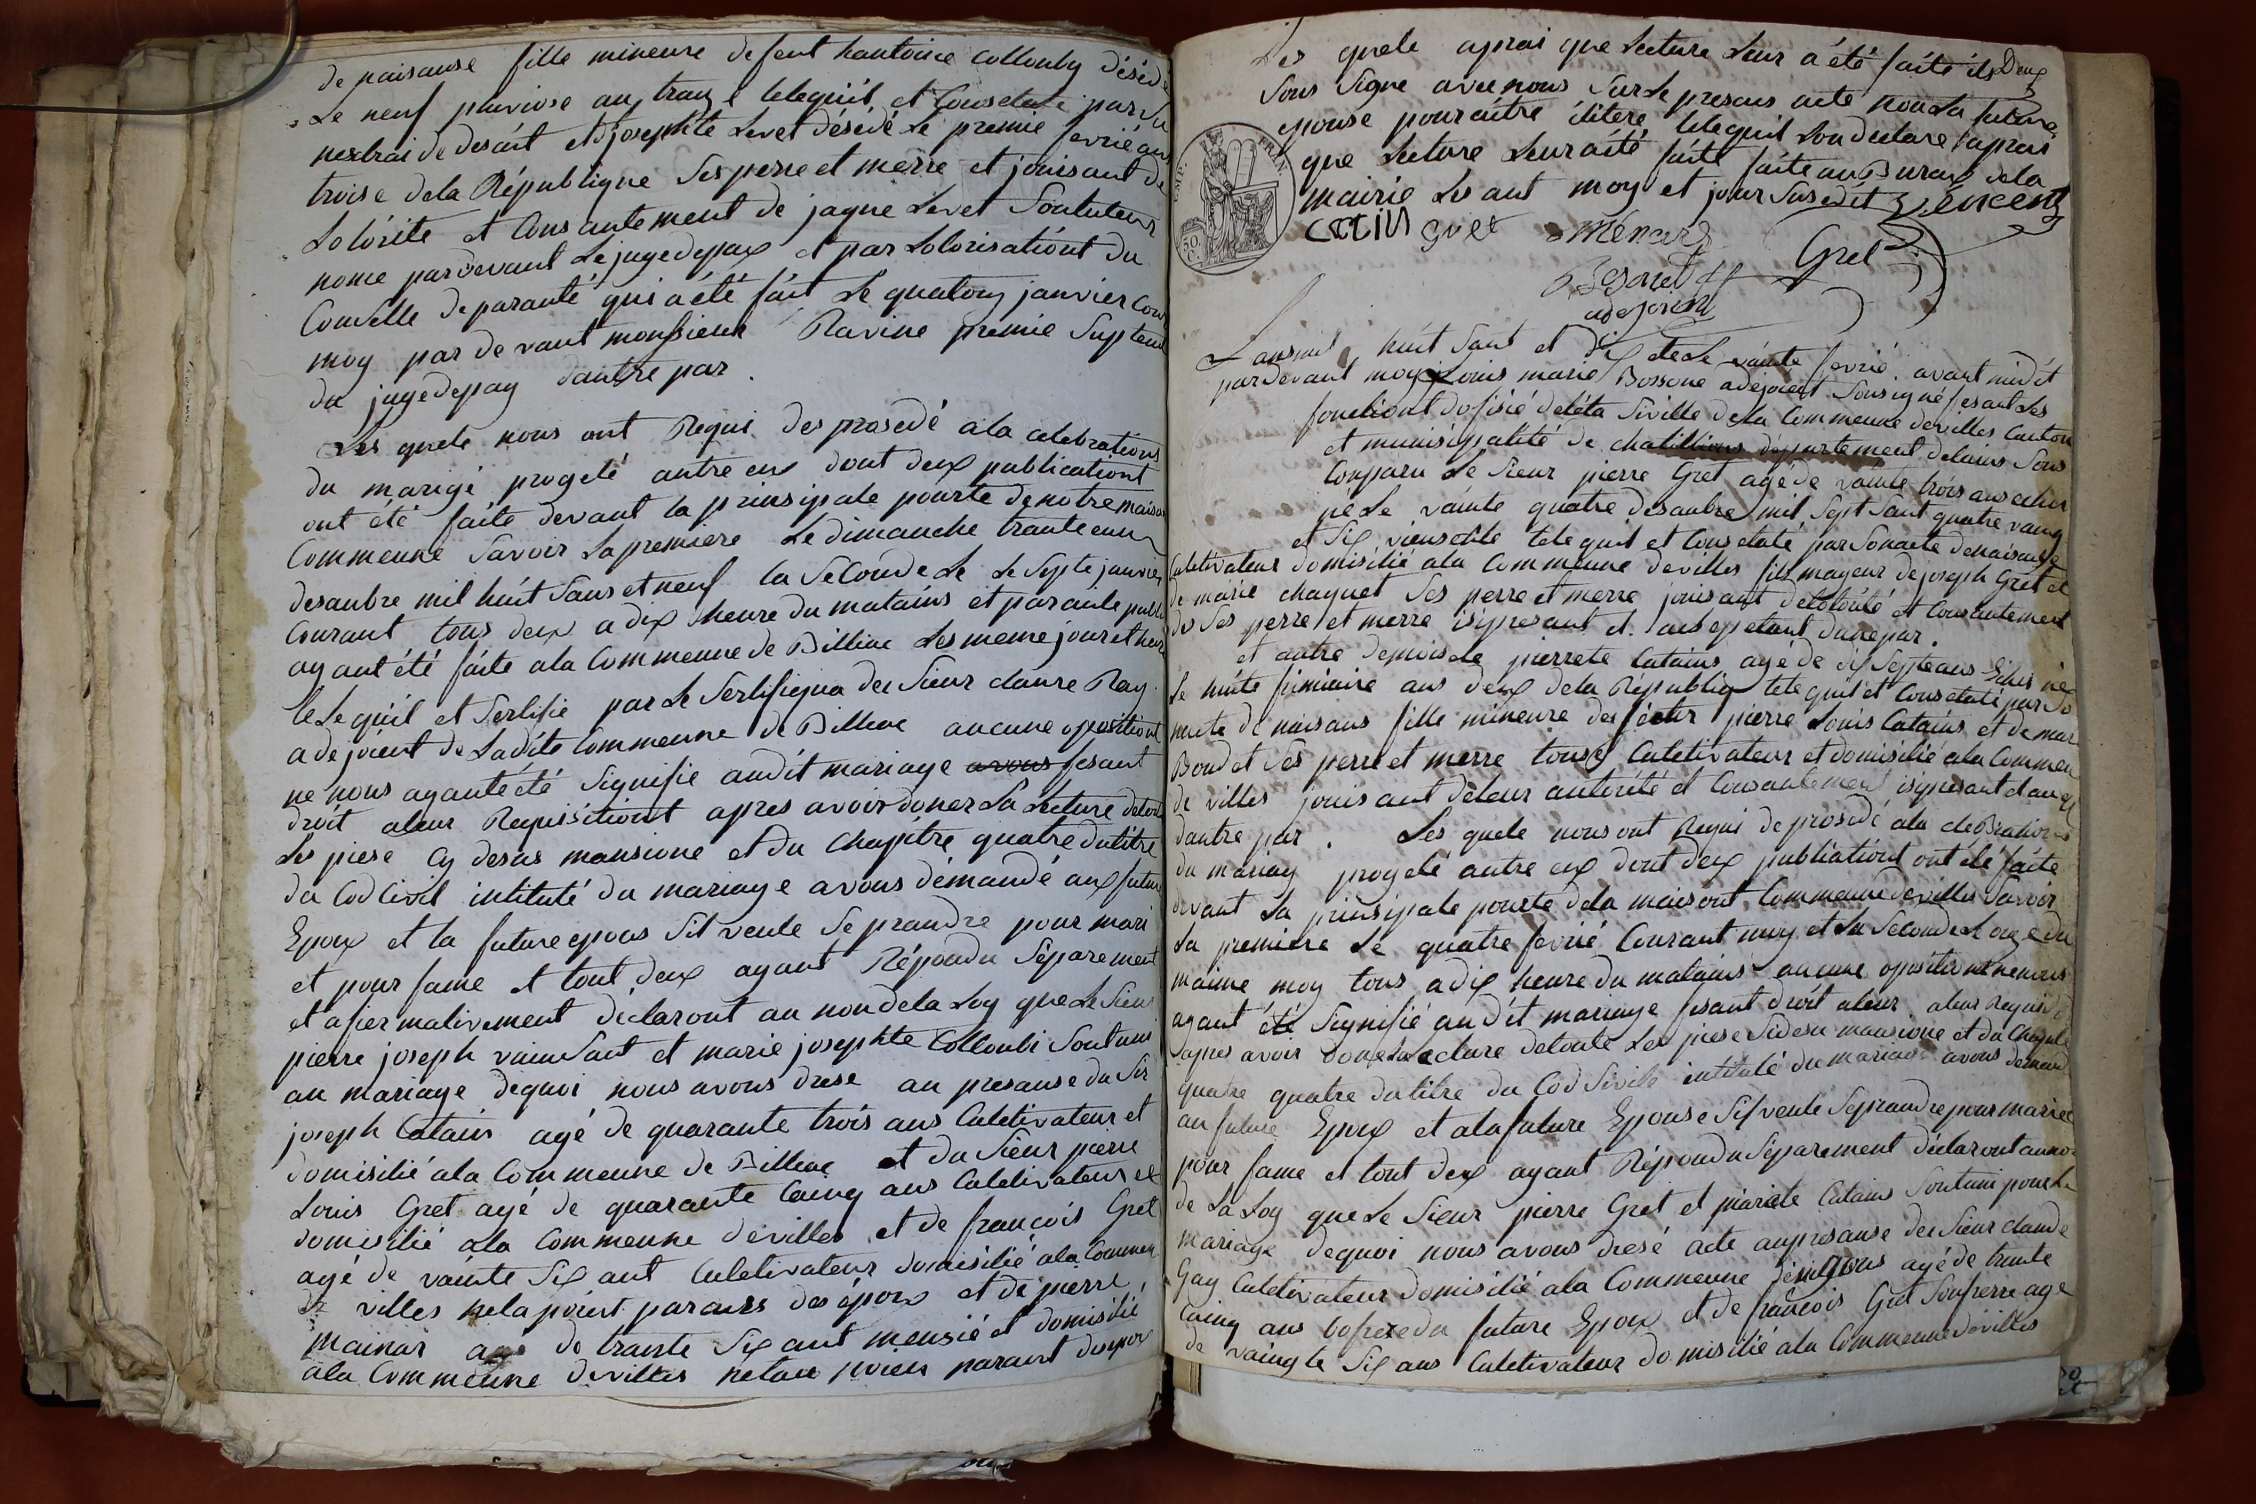 de naisanse fille mineure defeut hantoine Collonby désédé
Le neuf pluviose an traize telequil, et Consetaté par Su
nextrai de desáit et djosephte Levet désédé Le premié fevrié an
troise dela République Ses perre et merre et jouisant de
Lotorité et Consantement de jaque Levet Sontuteur
nome pardevant Lejugedepaix et par Lotorisationt du
Conselle deparanté qui a été fáit Le quatorz janvier Cour
moy par devant monssieur Ravine premié Supleant
du jugedepay dautre par
Les quele nous ont Requi des prosedé ala celebrations
du marigé progeté autre eux dont deux publicationt
ont été faite devant la prinsipale pourte denotre maison
Commeune Savoir Lapremiere Le dimanche trante eun
desanbre mil húit Sans et neuf la SeCondeLe Le Septe janvier
Courant tous deux a dix heure du matains et par aute publi
ayant été fáite ala Commeune de Billiac Les meme jour et heure
leLe quil et Sertifié par Le Sertifiqua dei Sieur claure Ray
adejoient de Ladite Commeune de Billiac aucune opositiont
ne nous ayanteété Signifie audit mariage avons fesant
droit aleur Requisitiont apres avoir doner La Lecture detout
Les piese Cy desus mansione et du Chapitre quatre dutitre
du Cod Civil intituté du mariage avons démandé aux future
Epoux et la future epous Sil veule Se prandre pour mari
et pour fame et tout deux ayant Répondu Séparement
et afiermativement déclaront au nondela Loy queLe Sieur
pierre joseph vainsant et marie josephte Colloubi Sontuni
au mariage dequoi nous avons drese au presanse du Sir
joseph Catain agé de quarante trois ans Culetivateur et
domisilié ala Commeune de Billiac et du Sieur pierre
Louis Gret agé de quarante Cainq ans Culetivateur et
domisilié ala Commeune devilles et de françois Gret
agé de vainte Six ant Culetivateur domisilié ala Commeu
de villes nela póint parans des époux et de pierre
mainar agé de trante Six ant mensié et domisilié
ala Commeune devilles netan poien parant des epoux
Les quele aprai que Lecture Leur a été fáite ils Deux
Sous Signe avec nous Sur Le presans acte nonLa future
epouse pour aitre ilitere telequil Londeclare aprais
que Lecture Leur aité fáite fáite au Buraux dela
mairie Les ant moy et jour Susedit Vencent
Gret Ménard
Gret
adejoient
Lansmil húit Sant et Dix et Le vainte fevrié avant midit
pardevant moy Louis marie Bossone adejoient Sousigné fesant Les
fonctiont dofisié deléta Siville dela Commeune devilles Canton
et munisipalité de chatillions département delains Sons
Conparu Le Sieur pierre Gret agé de vainte trois ans echu
né Le vainte quatre desanbre mil Sept Sant quatre vaing
et Six vieusetile telequil et Consetaté par Sonacte denaisanse
Culetivateur domisilié ala Commeune devilles fils mayeur dejoseph Gret et
de marie chaquet Ses perre et merre jouisant delotorité et Consantement
de Ses perre et merre isipresant et aucseptant dunepar.
et autre demoisele pierrete Catains agé de dix Septeans Echu né
Le húite frimaire ans deux dela Républiq telequil et Consetaté par So
nacte de naisans fille mineure des pierre Louis Catains et de mar
Boudet Ses perre et merre tous Culetivateur et domisilié ala Commeu
de villes jouisant deleur autórité et Consantement isipresant et au
dautre par. Les quele nous ont Requi deprosidé ala celebrations
du mariag progeté autre eux dont deux publicationt ont été fáite
devant La prinsipale pourte dela maisont Commeune devilles Savoir
La premiere Le quatre fevrié Courant moy et La SecondeLe onze du
maime moy tous adix heure du matains aucune opositiont nenous
ayant été Signifié audit mariage fesant droit aleur aleur Requis
apres avoir donelaLecture detoute Les piese Sidesu mansione et du Chapit
quatre quatre dutitre du Cod Sivile intitulé du mariag avons demand
au future Epoux et alafuture Epouse Sil veule Seprandre pour marie
pour fame et tout deux ayant Répondu Séparement declaront aunon
de La Loy que Le Sieur pierre Gret et pierete Catains Sontuni pour Le
mariage dequoi nous avons dresé acte aupresanse dei Sieur claude
Gay Culetivateur domisilié ala Commeune agé de trante
Cainq ans bofrere du future Epoux et de françois Gret Son frerre age
de vaingte Six ans Culetivateur domisilié ala Commeune devilles